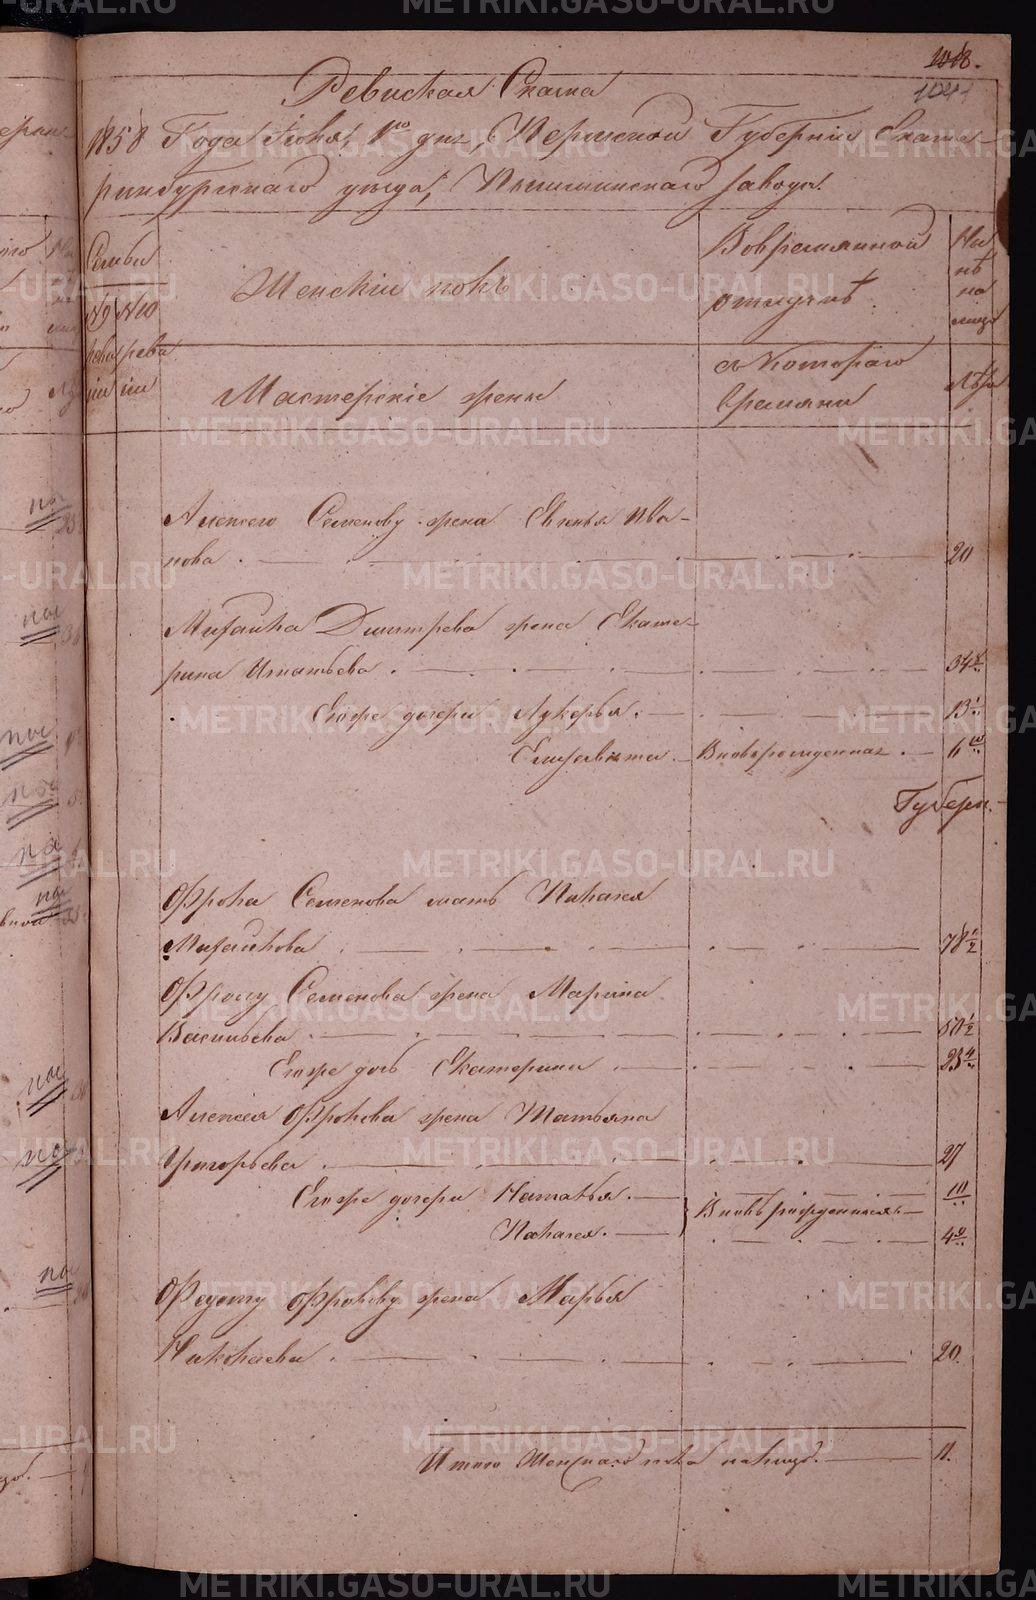 1018.
1041
Ревиская Сказка
1858 Года Июня 1го дня, Пермской Губернии Екате-
ринбургскаго уезда, Пышминскаго завода.
Семьи
Женский полъ
Вовремянной
отлучкѣ
Ны
нѣ
на
лицо
№9 №10
реви реви
зiи зiи
Мастерскiе жены
съ котораго
времяни
Лѣта
Алексею Семенову жена Евгенья Ива-
нова . 20
Михайла Дмитрева жена Екате-
рина Игнатьева . 34
Егоже дочери Лукерья . 13
Елизавета . Вновьрожденная . 6
Губерн.
Фрола Семенова мать Пелагея
Михайлова . 78 1/2
Фролу Семенова жена Марина
Васильева . 50 1/2
Егоже дочь Екатерина 23
Алексея Фролова жена Татьяна
Григорьева . 27
Егоже дочери Наталья . Вновьрожденныя
Пелагея . 4
Федоту Фролову жена Марья
Николаева . 20.
Итого Женскаго пола налицо . 11.
METRIKI.GASO-URAL.RU